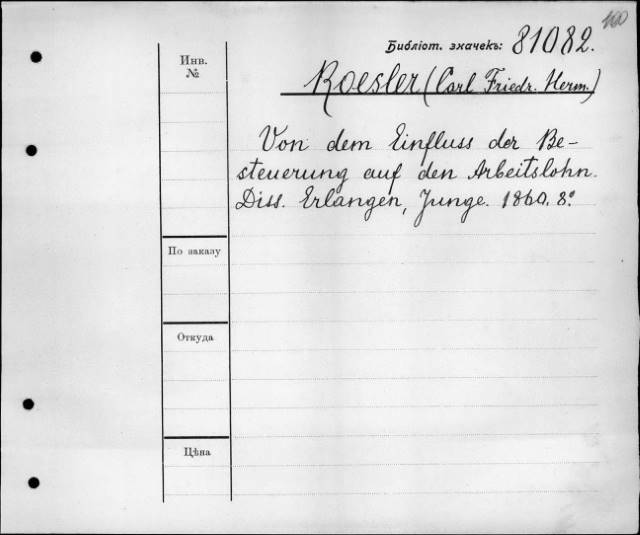 100
Библіот. значекъ: 81082.
Инв.
№
Roesler (Carl Friedr. Herm.)
Von dem Einfluss der Be-
steuerung auf den Arbeitslohn.
Diss. Erlangen, Junge. 1860. 8°.
По заказу
Откуда
Цѣна